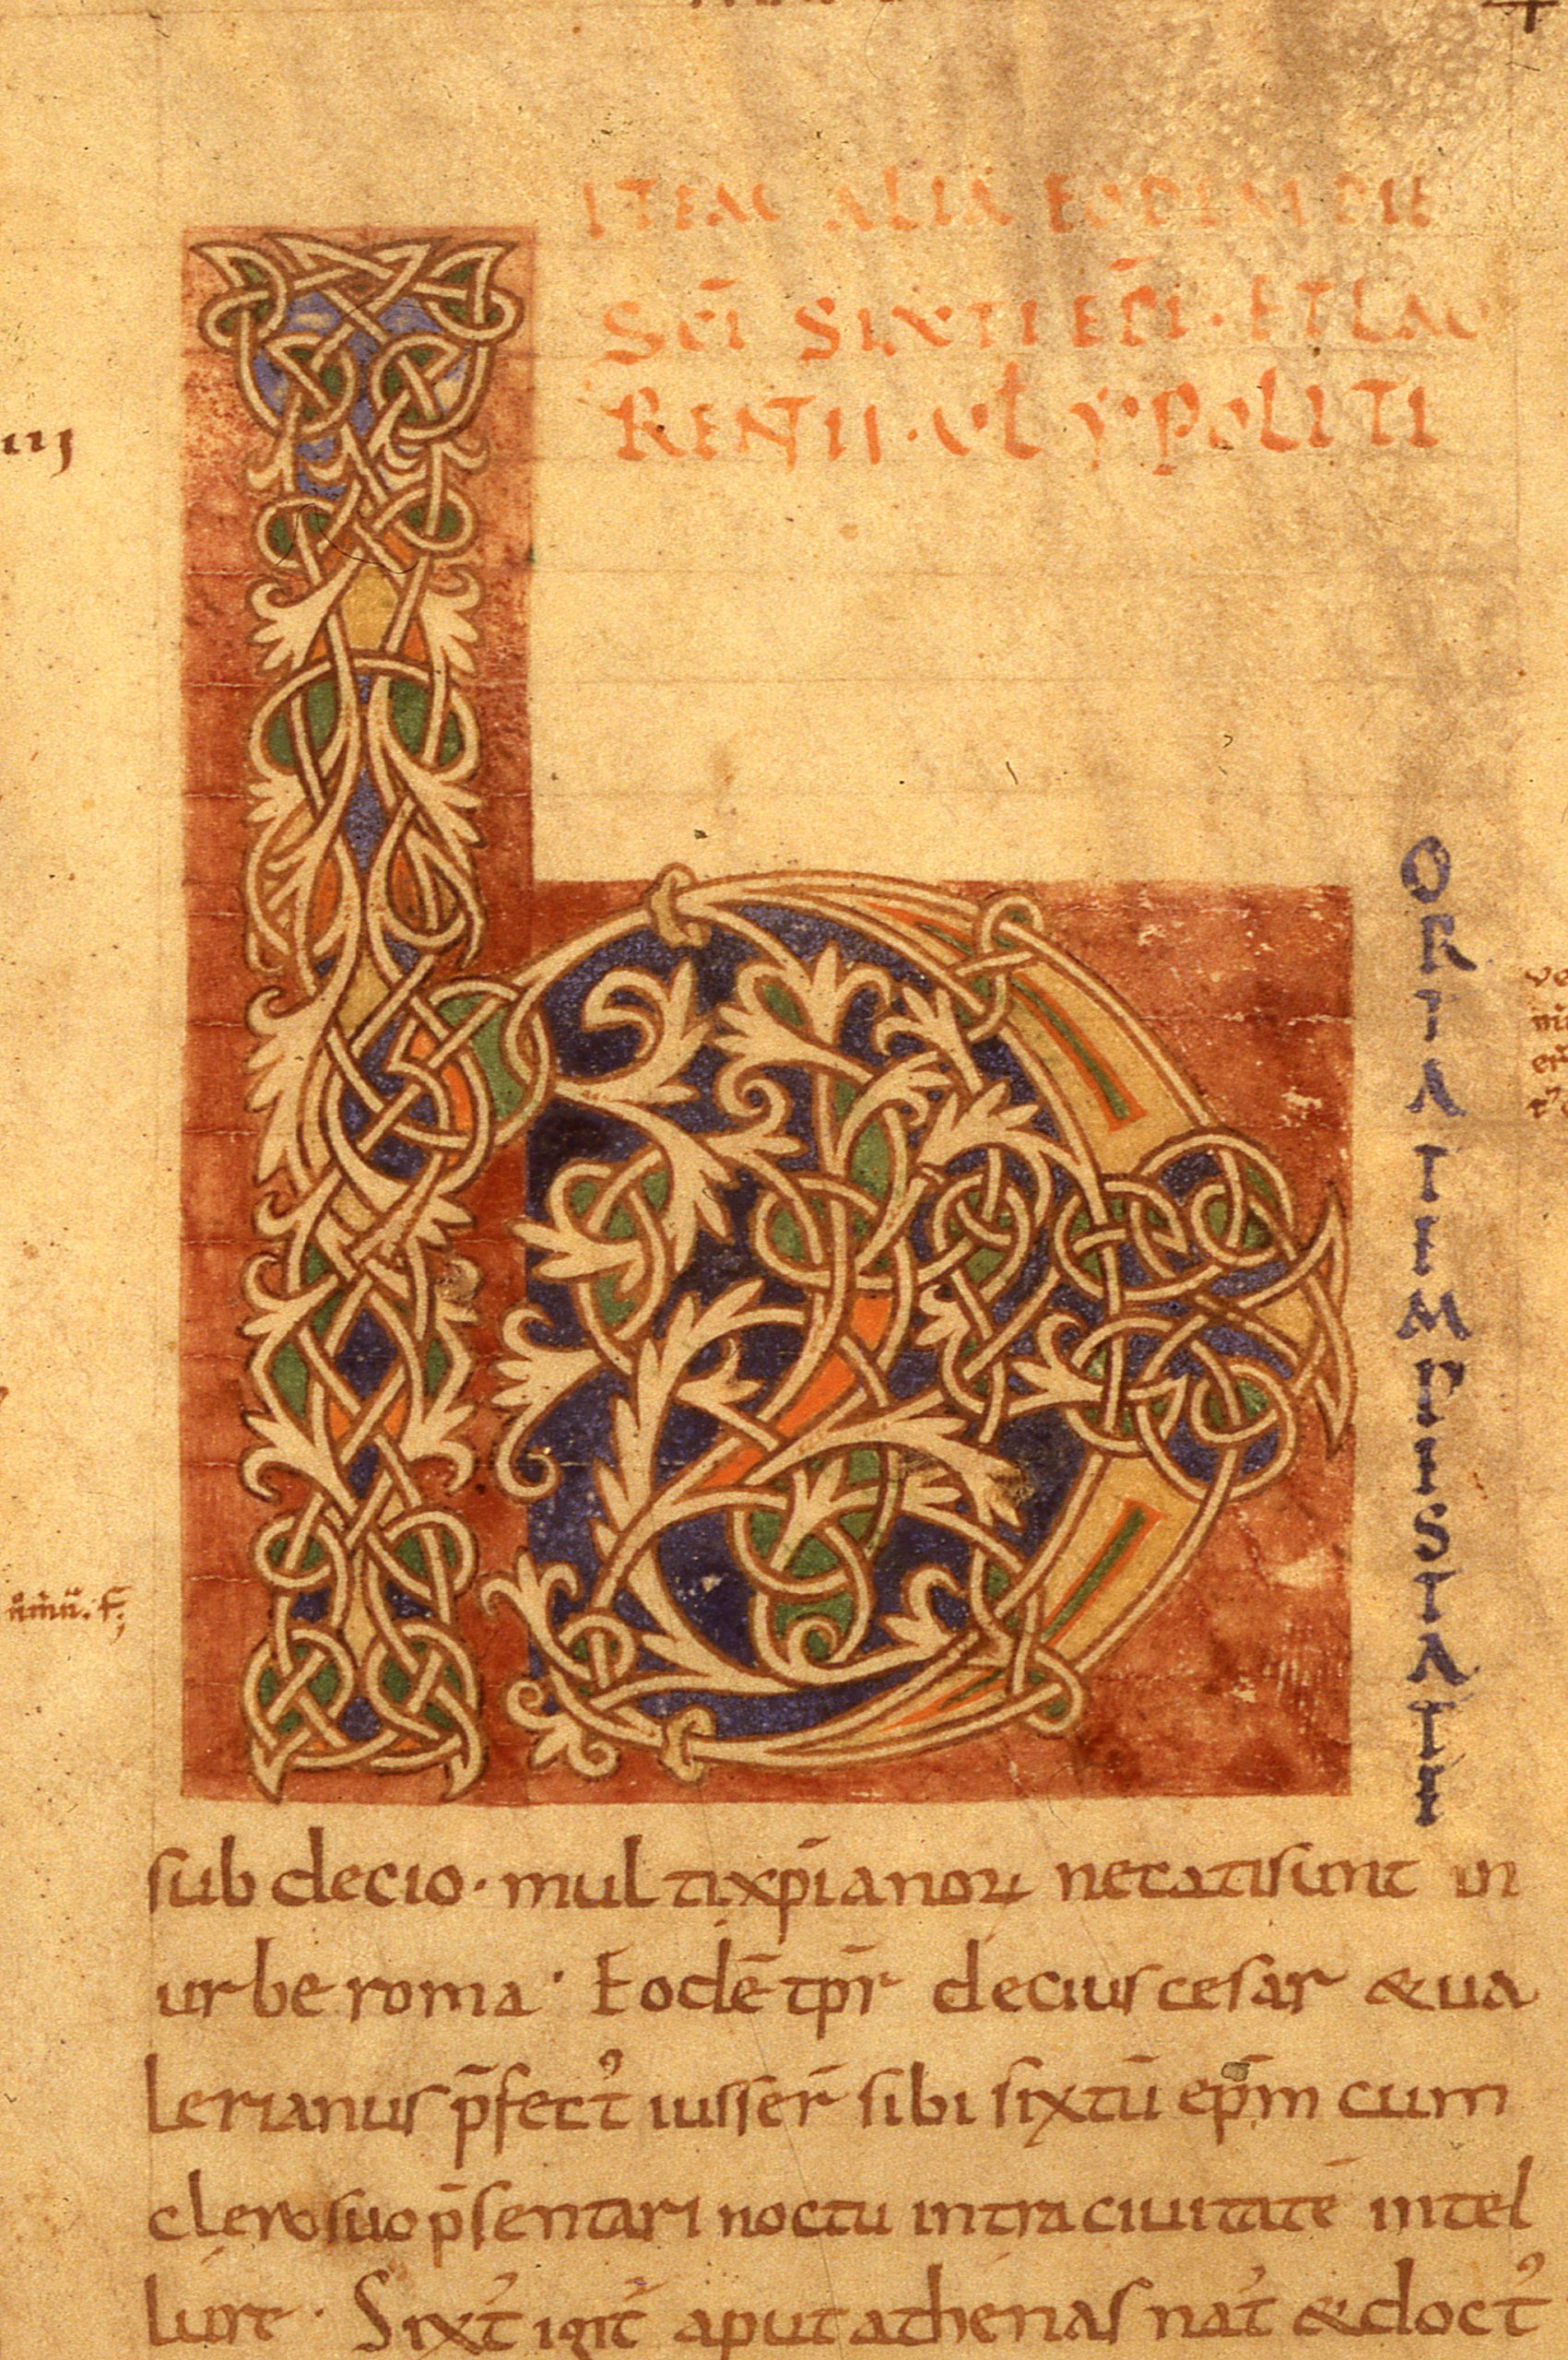 ITEM ALIA EODEM DIE
SC̄I SIXTI EP̄I · ET LAU
RENTII · vel Y·POLITI
h
ORTATI
sub decio · multi xp̄ianoꝝ necati sunt in
urbe roma · Eodē tp̄r decius cesar & ua
lerianus p̄fectꝰ iusser̄ sibi sixtū ep̄m cum
clero suo p̄sentari noctu intra ciuitatē in tel
lure · Sixtꝰ igit̄ aput athenas natꝰ & doctꝰ